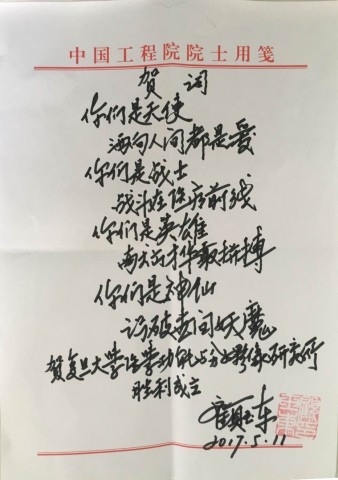 中国工程院院士用笺
贺词
你们是天使
洒向人间都是爱
你们是战士
战斗在医疗前线
你们是英雄
有才华敢拼搏
你们是神仙
识破人间妖魔
贺复旦大学医学功能与分子影像研究所
胜利成立
东
2017.5.11